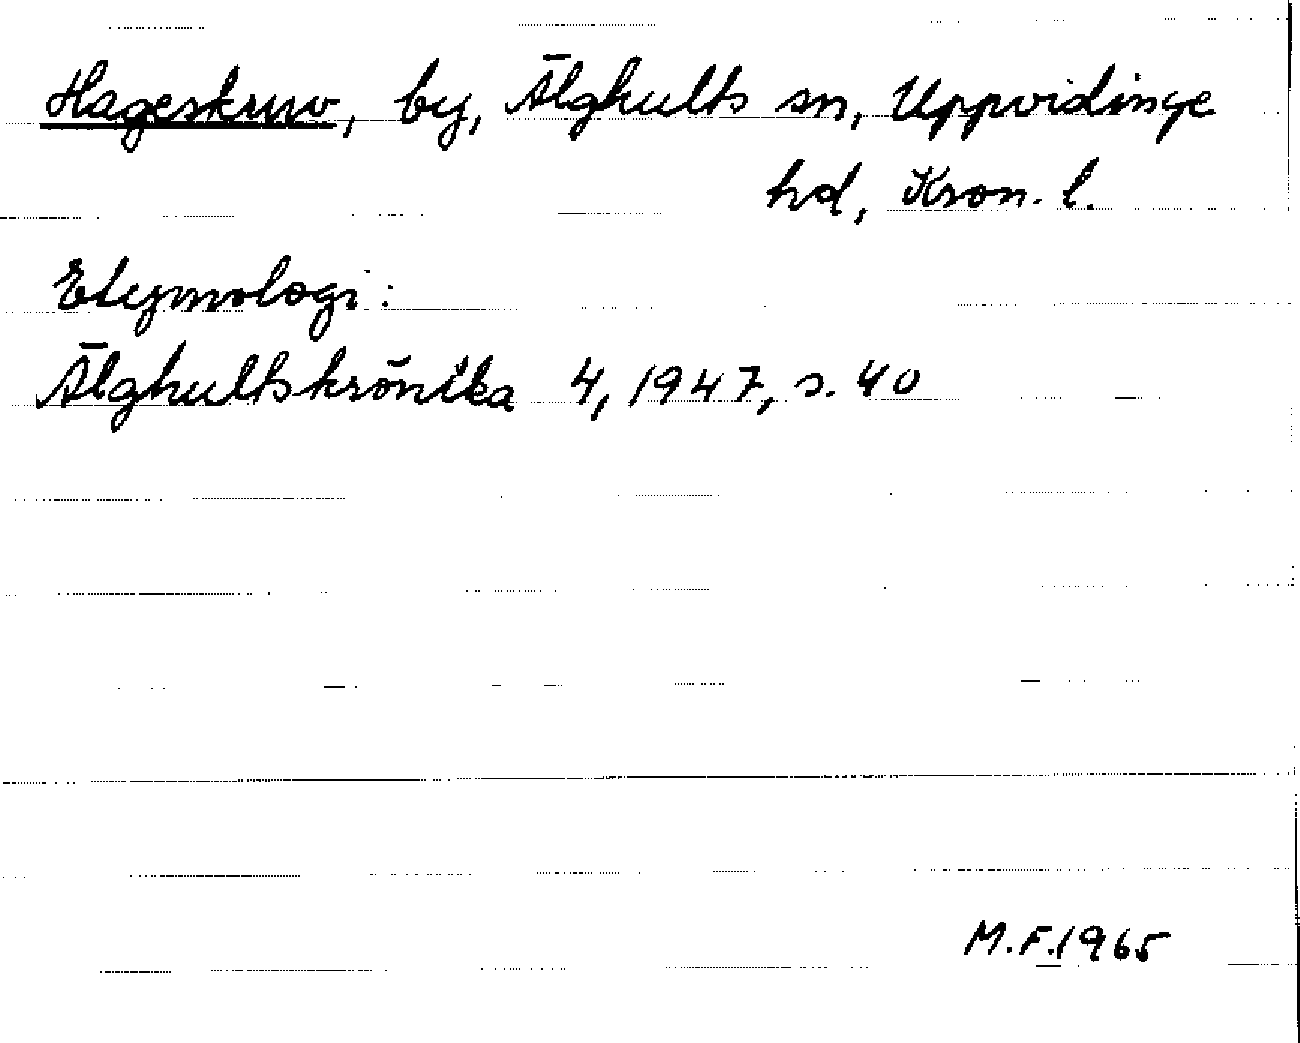 Hageskruv, by, Älghults sn, Uppvidinge
hd, Kron. l.
Etymologi:
Älghultskrönika 4, 1947, s. 40
M.F. 1965